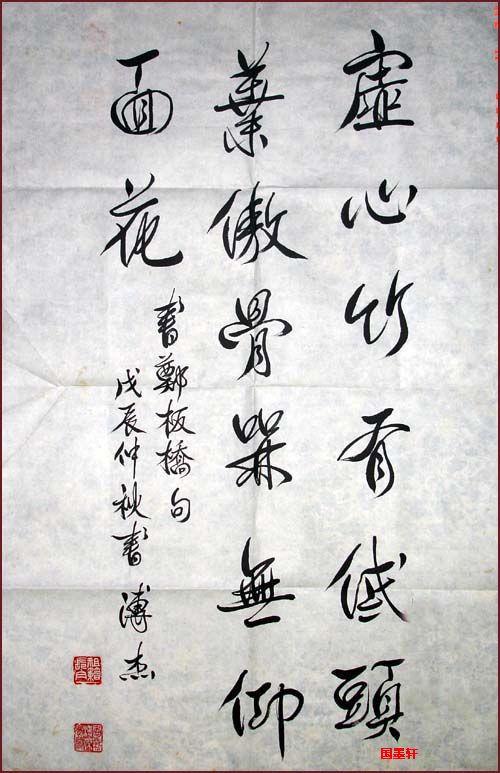 虚心竹有低頭
葉傲骨槑無仰
面花
書鄭板橋句
戊辰仲秋書 溥杰
国墨轩